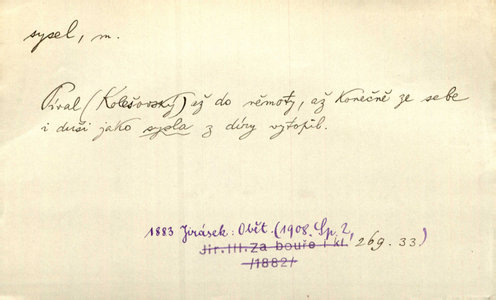 sysel, m.
Píval (Kolešovský) až do němoty, až konečně ze sebe
i duši jako sysla z díry vytopil.
1883 Jirásek: Obět. (1908. Sp. 2,
Jir.III.Za bouře i kl. 269. 33.)
/1882/